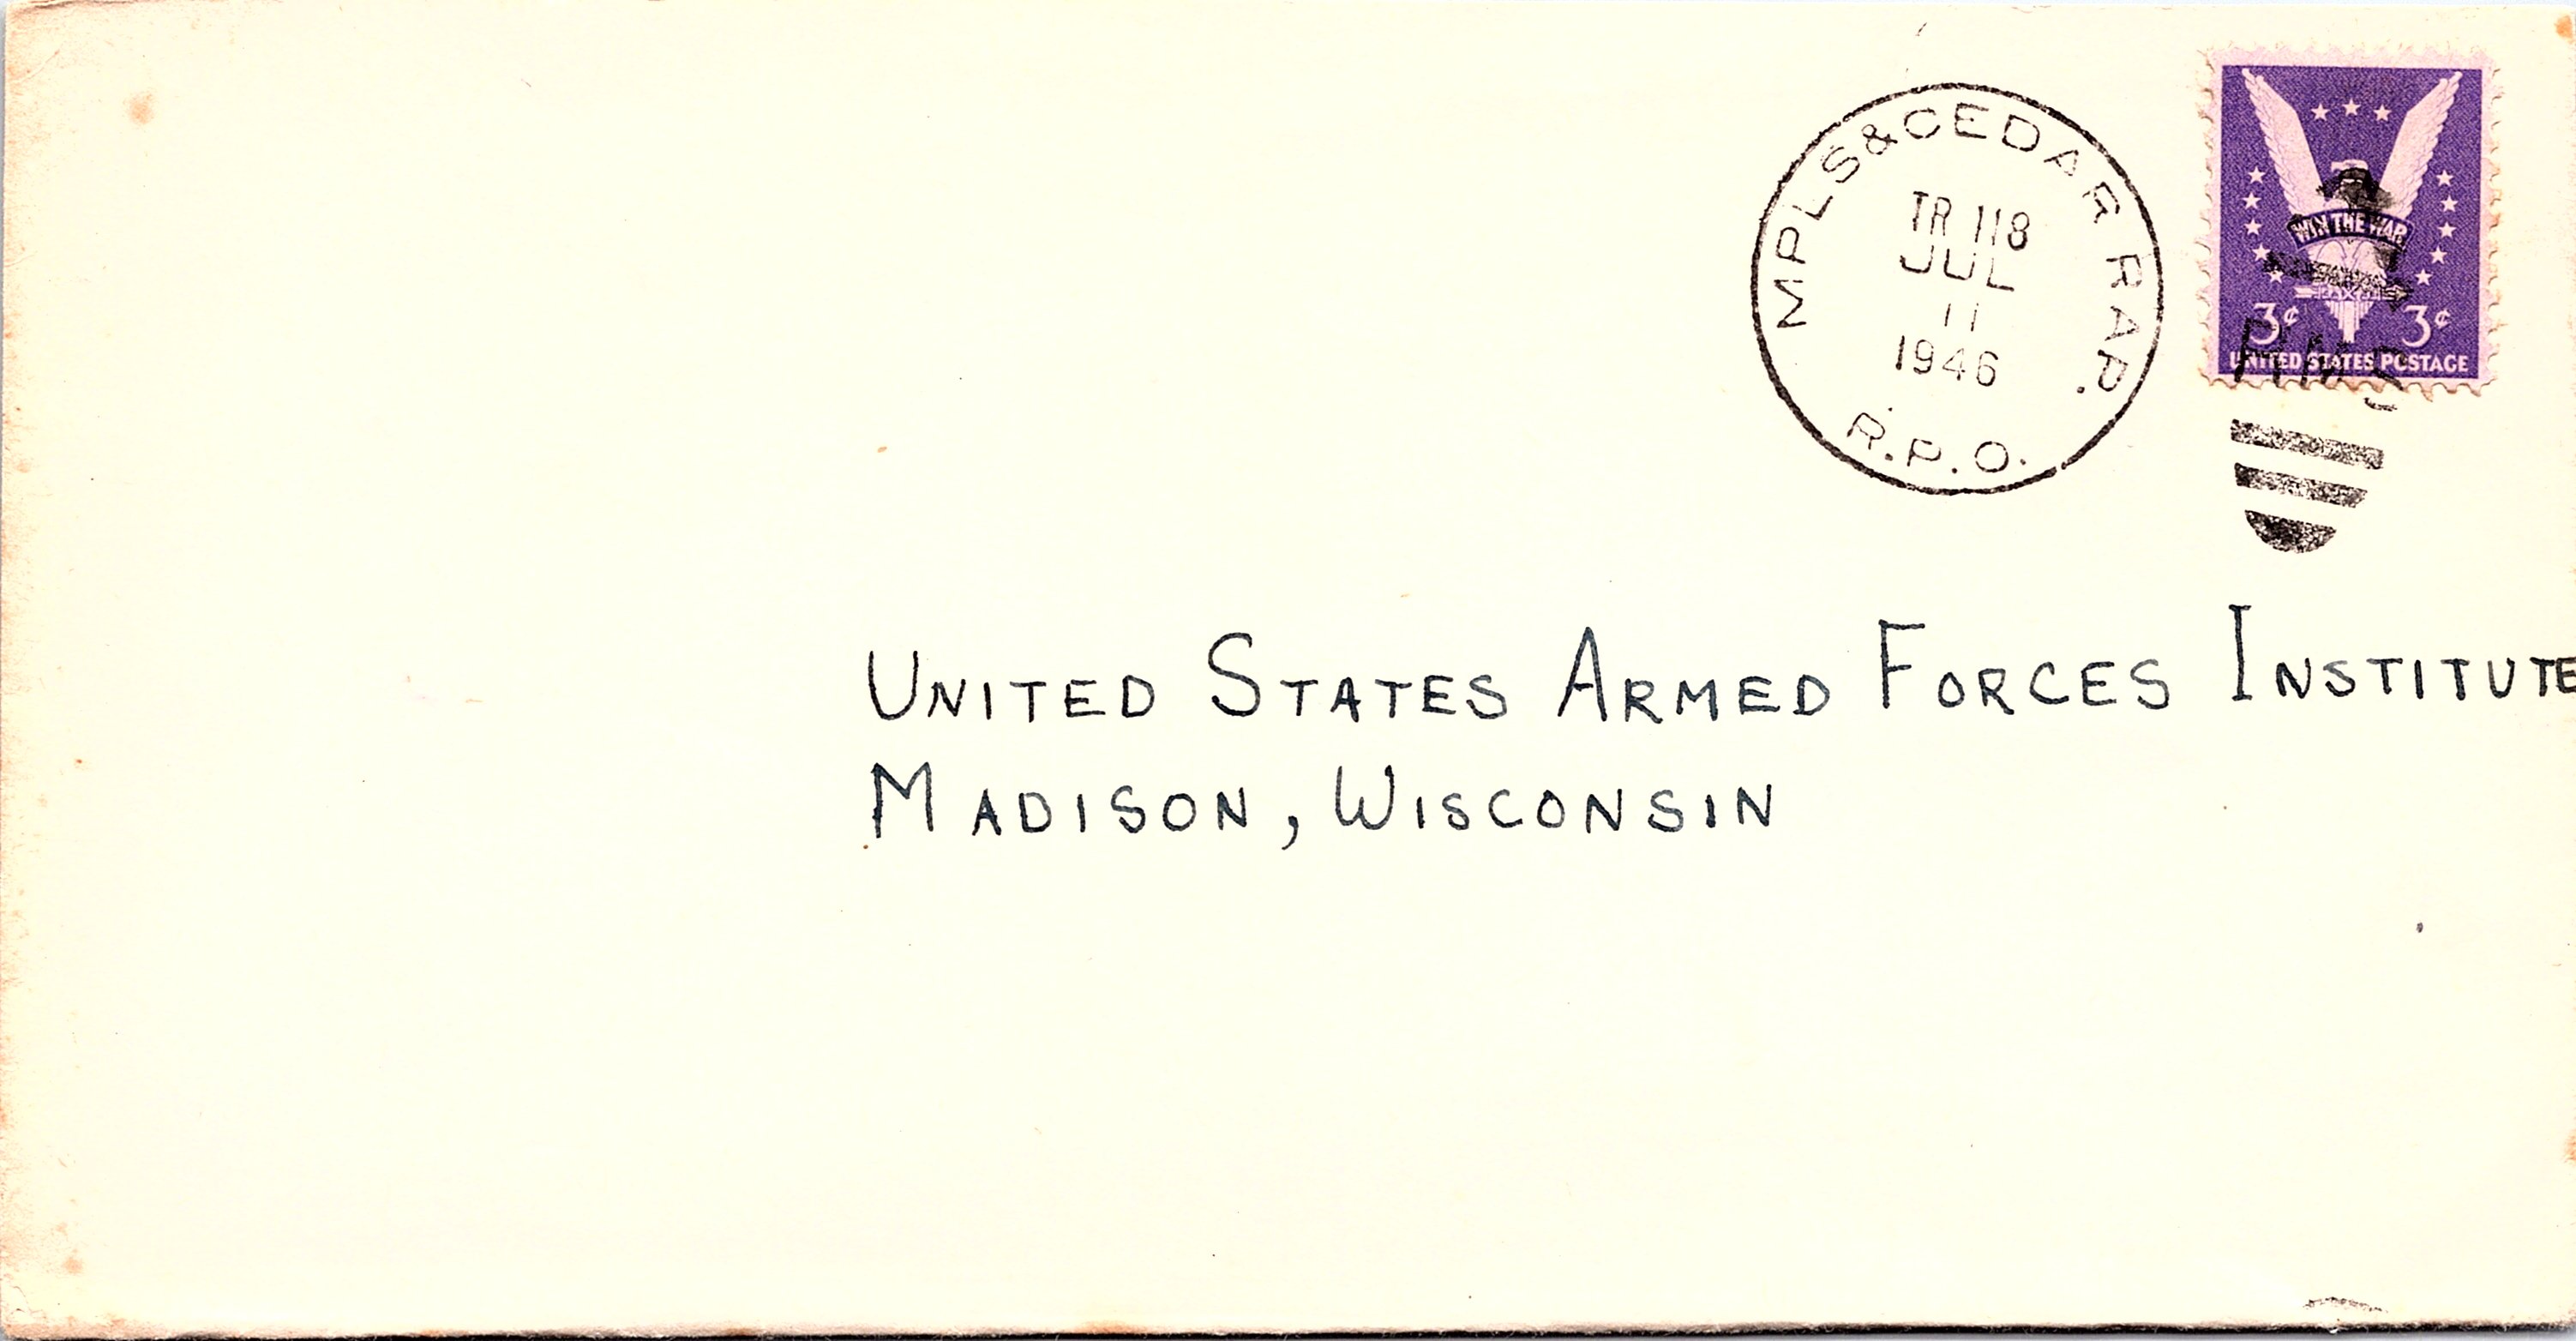 MPLS & CEDAR RAP.
TR 118
JUL
11
1946
R.P.O.
WIN THE WAR
3¢ 3¢
UNITED STATES POSTAGE
RMS
UNITED STATES ARMED FORCES INSTITUTE
MADISON, WISCONSIN